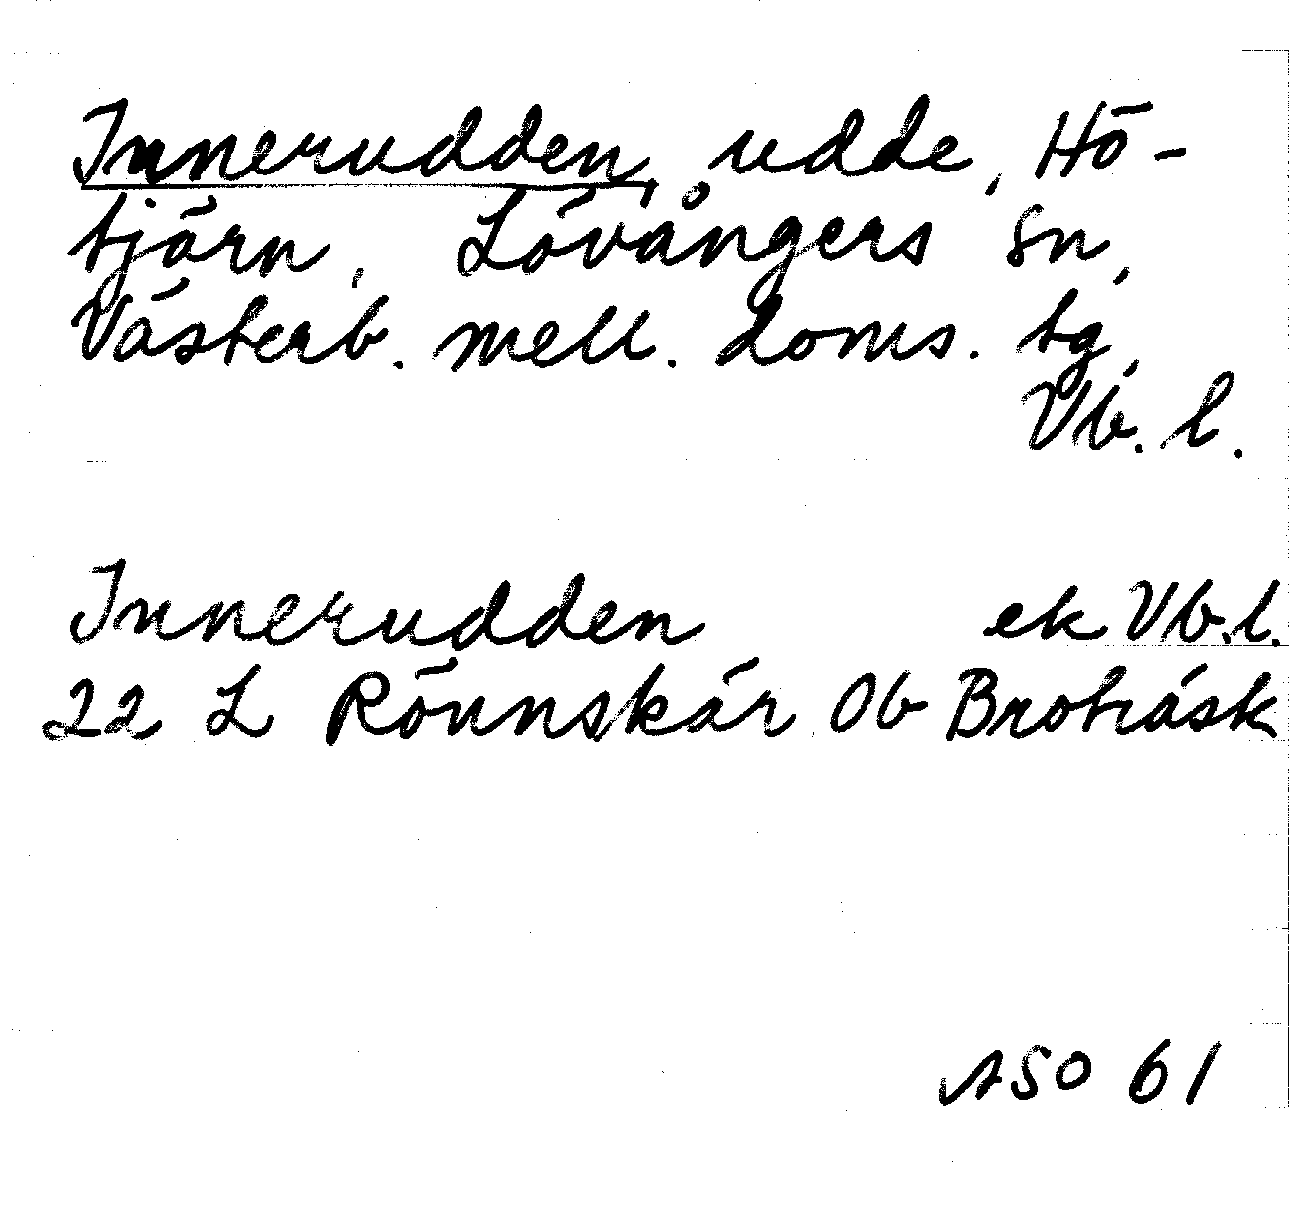 Innerudden, udde, Hö-
tjärn, Lövångers sn,
Västerb. mell. doms. tg,
Vb. l.
Innerudden ek Vb.l.
22 L Rönnskär Ob Broträsk
ASO 61